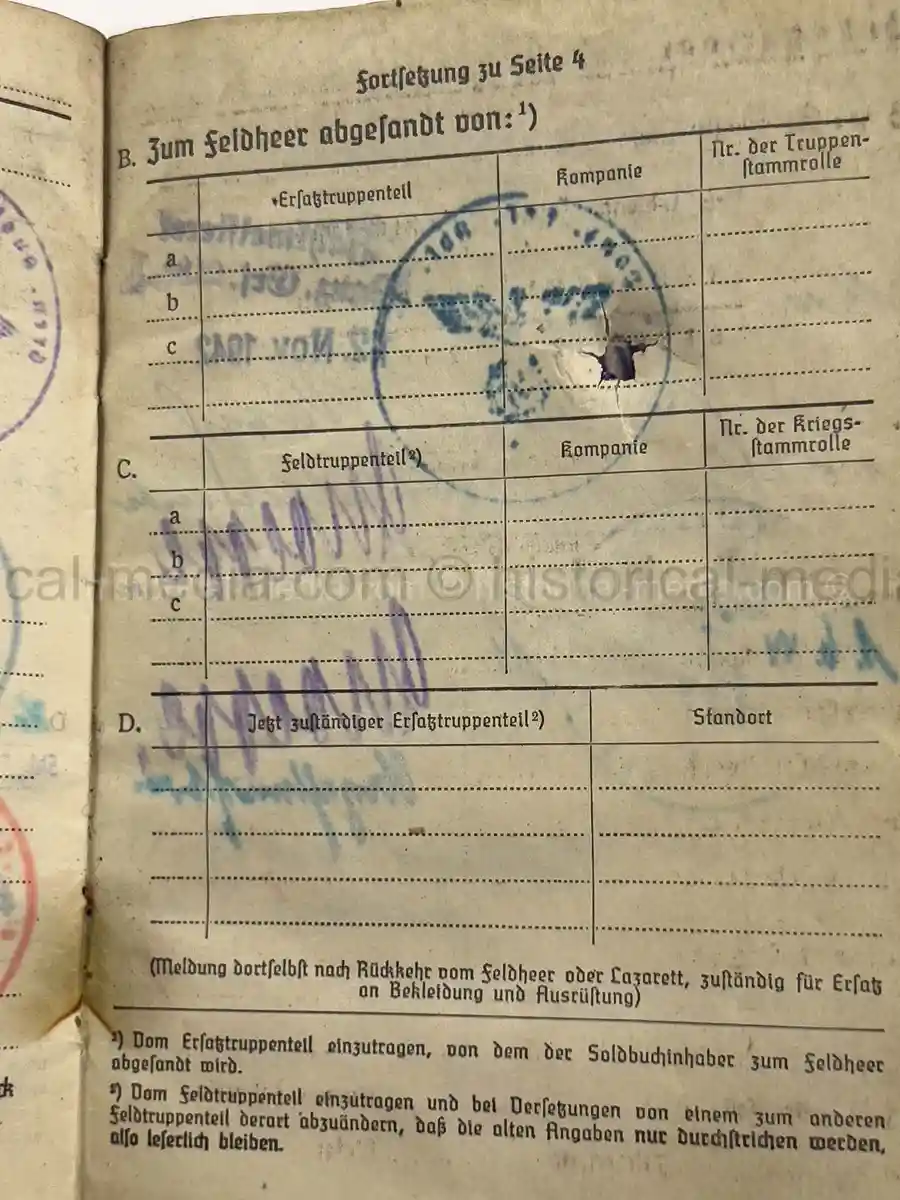 Fortsetzung zu Seite 4
B. Zum Feldheer abgesandt von: ¹)
Ersatztruppenteil
Kompanie
Nr. der Truppen-
stammrolle
a
b
c
C.
Feldtruppenteil ²)
Kompanie
Nr. der Kriegs-
stammrolle
a
b
c
cal-media.com © historical-medi
D.
Jetzt zuständiger Ersatztruppenteil ²)
Standort
(Meldung dortselbst nach Rückkehr vom Feldheer oder Lazarett, zuständig für Ersatz
an Bekleidung und Ausrüstung)
¹) Vom Ersatztruppenteil einzutragen, von dem der Soldbuchinhaber zum Feldheer
abgesandt wird.
²) Vom Feldtruppenteil einzutragen und bei Versetzungen von einem zum anderen
Feldtruppenteil derart abzuändern, daß die alten Angaben nur durchstrichen werden,
also leserlich bleiben.